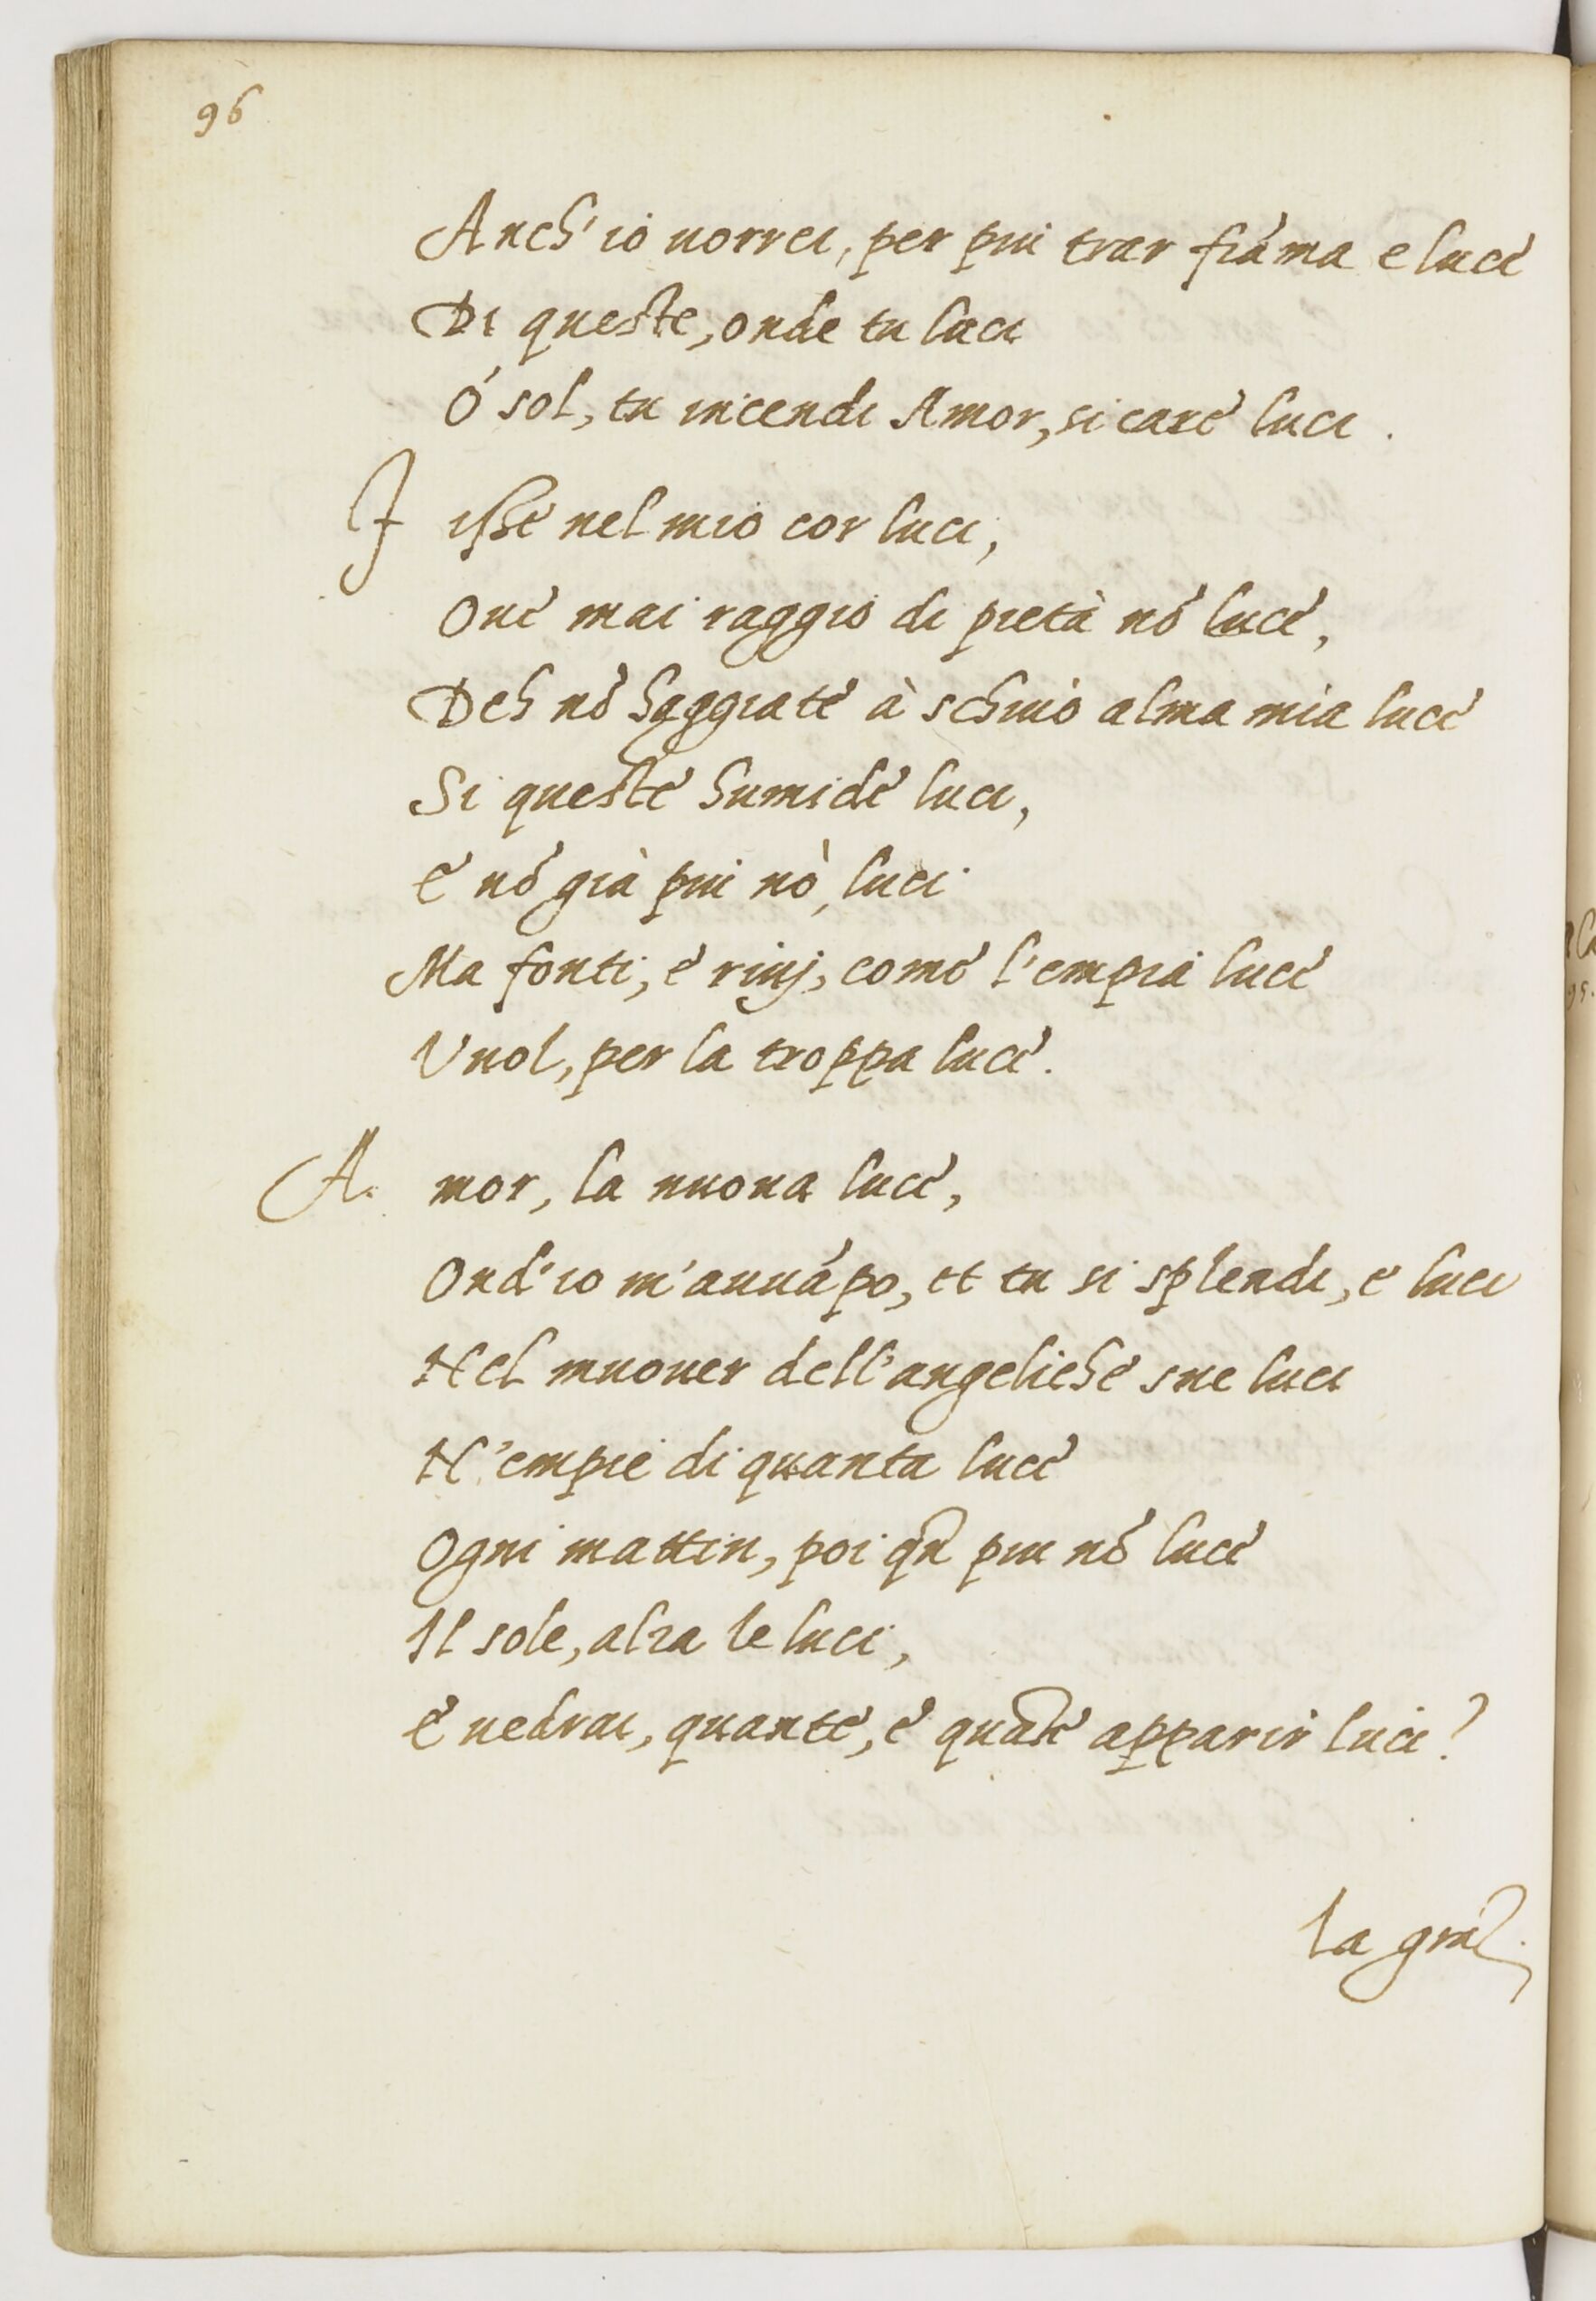 96
Anch'io uorrei, per piu trar fiãma e luce
Di queste, onde tu luci
Ó sol, tu incendi Amor, si care luci.
F isse nel mio cor luci,
Oue mai raggio di pietà nõ luce,
Deh nõ haggiate à schiuo alma mia luce
Si queste humide luci,
E nõ già piu nò, luci
Ma fonti, e riuj, come l'empia luce
Vuol, per la troppa luce.
A mor, la nuoua luce,
Ond'io m'auuãpo, et tu si splendi, e luci
Nel muouer dell'angeliche sue luci
N'empie di quanta luce
Ogni mattin, poi qñ piu nõ luce
Il sole, alza le luci,
E uedrai, quante, e quãte apparir luci?
la